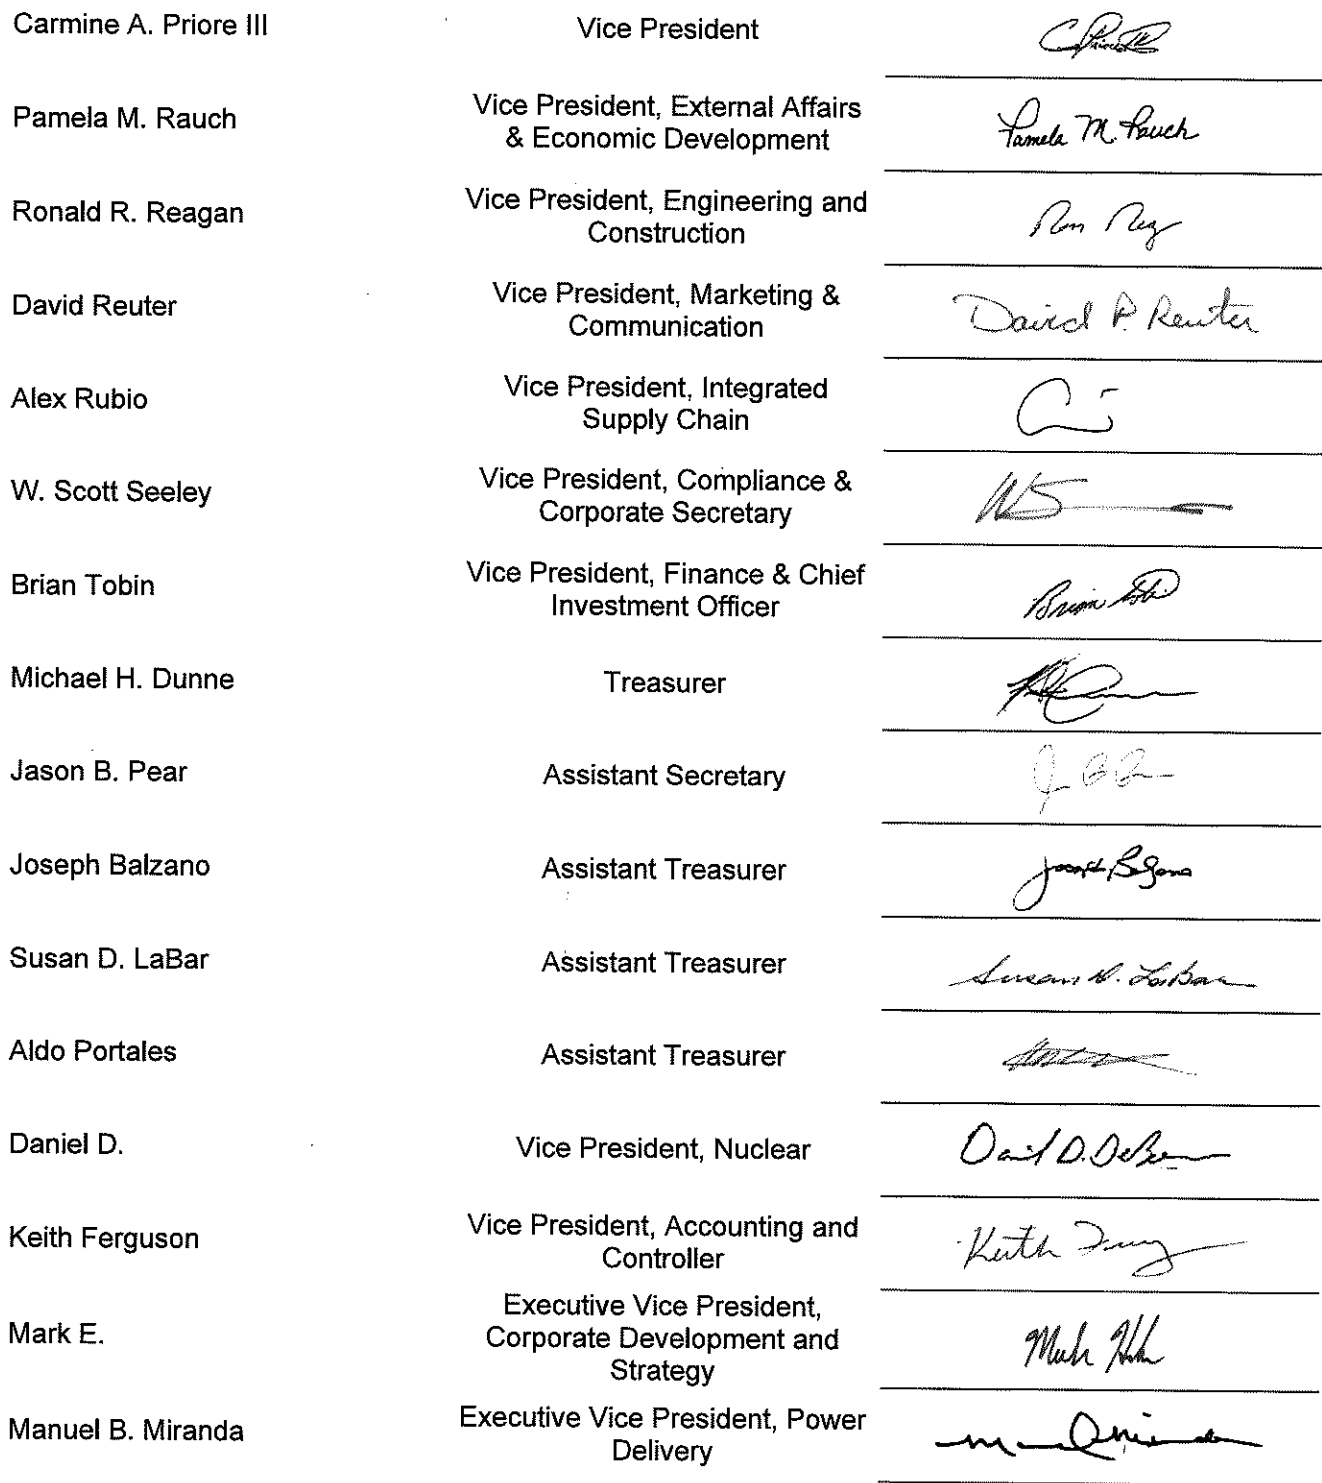 Carmine A. Priore III Vice President
Pamela M. Rauch Vice President, External Affairs & Economic Development Pamela M. Rauch
Ronald R. Reagan Vice President, Engineering and Construction Ron
David Reuter Vice President, Marketing & Communication David P. Reuter
Alex Rubio Vice President, Integrated Supply Chain
W. Scott Seeley Vice President, Compliance & Corporate Secretary
Brian Tobin Vice President, Finance & Chief Investment Officer Brian
Michael H. Dunne Treasurer
Jason B. Pear Assistant Secretary
Joseph Balzano Assistant Treasurer Joseph Balzano
Susan D. LaBar Assistant Treasurer Susan D. LaBar
Aldo Portales Assistant Treasurer
Daniel D. Vice President, Nuclear
Keith Ferguson Vice President, Accounting and Controller Keith
Mark E. Executive Vice President, Corporate Development and Strategy
Manuel B. Miranda Executive Vice President, Power Delivery